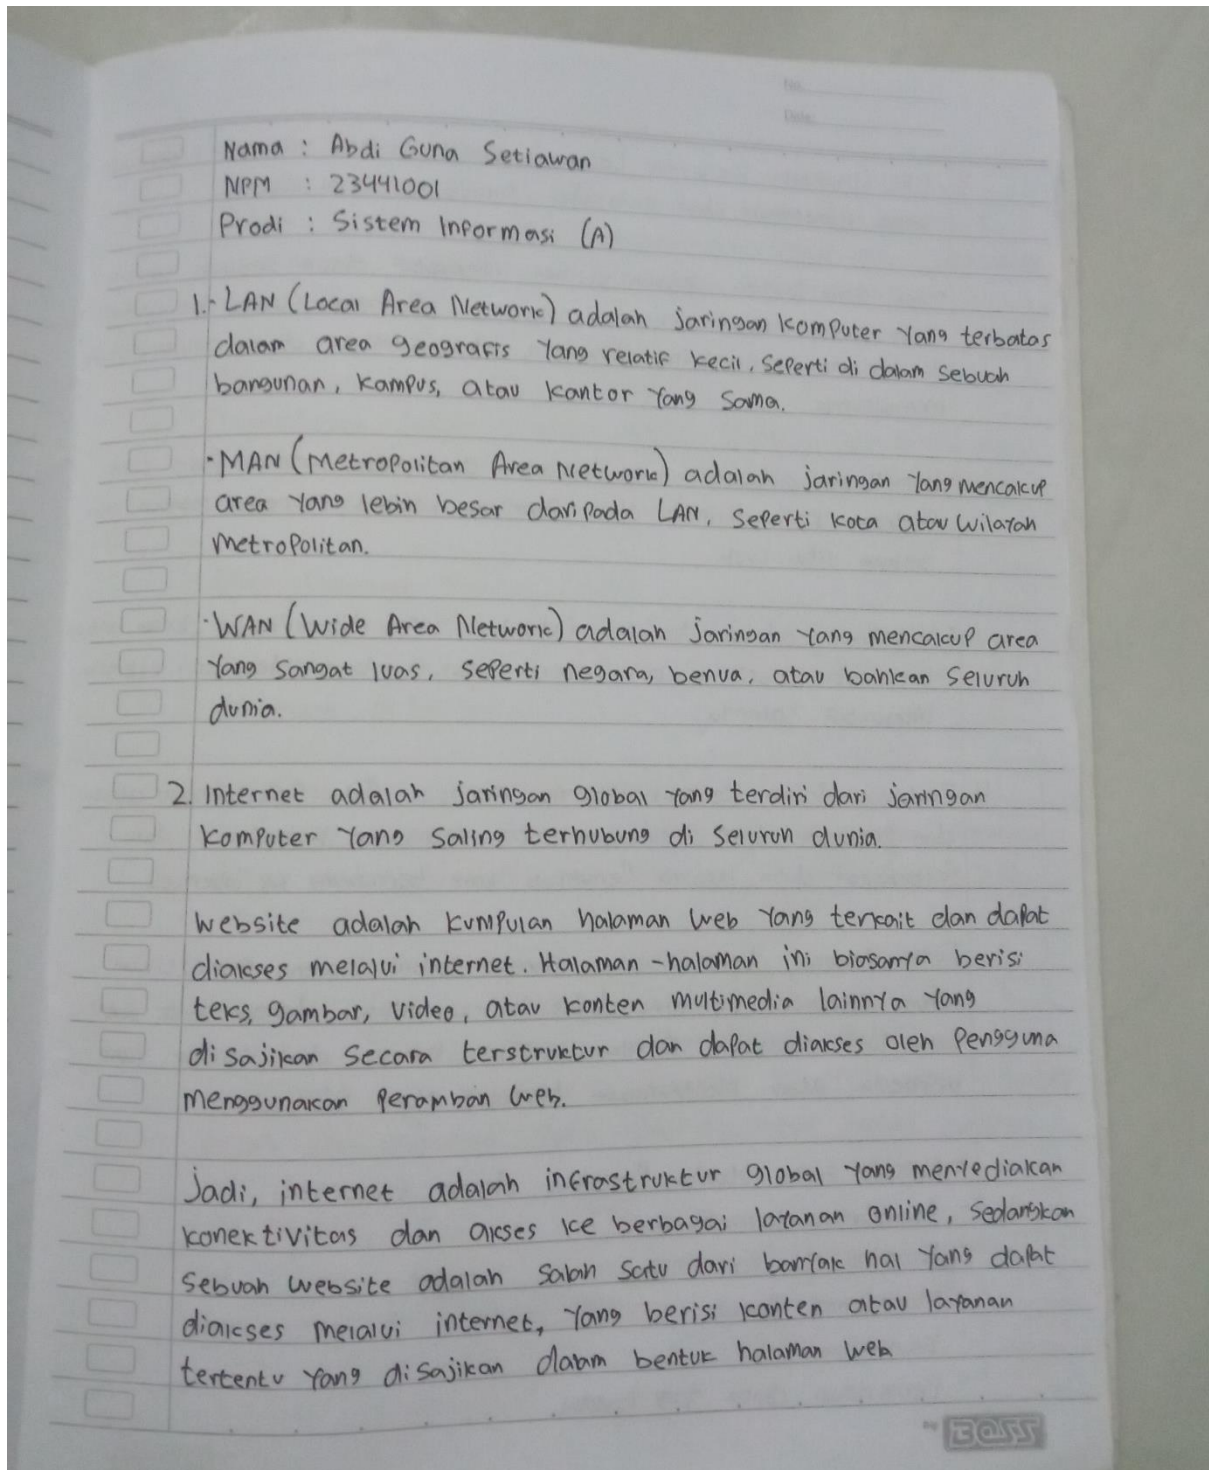 No.
Date:
Nama : Abdi Guna Setiawan
NPM : 23441001
Prodi : Sistem Informasi (A)
1.- LAN (Local Area Network) adalah jaringan komputer yang terbatas
dalam area geografis yang relatif kecil, seperti di dalam sebuah
bangunan, kampus, atau kantor yang sama.
·MAN (Metropolitan Area Network) adalah jaringan yang mencakup
area yang lebih besar daripada LAN, seperti kota atau wilayah
metropolitan.
·WAN (Wide Area Network) adalah jaringan yang mencakup area
yang sangat luas, seperti negara, benua, atau bahkan seluruh
dunia.
2. Internet adalah jaringan global yang terdiri dari jaringan
komputer yang saling terhubung di seluruh dunia.
Website adalah kumpulan halaman web yang terkait dan dapat
diakses melalui internet. Halaman-halaman ini biasanya berisi
teks, gambar, video, atau konten multimedia lainnya yang
disajikan secara terstruktur dan dapat diakses oleh pengguna
menggunakan peramban web.
Jadi, internet adalah infrastruktur global yang menyediakan
konektivitas dan akses ke berbagai layanan online, sedangkan
sebuah website adalah salah satu dari banyak hal yang dapat
diakses melalui internet, yang berisi konten atau layanan
tertentu yang disajikan dalam bentuk halaman web
BOSS